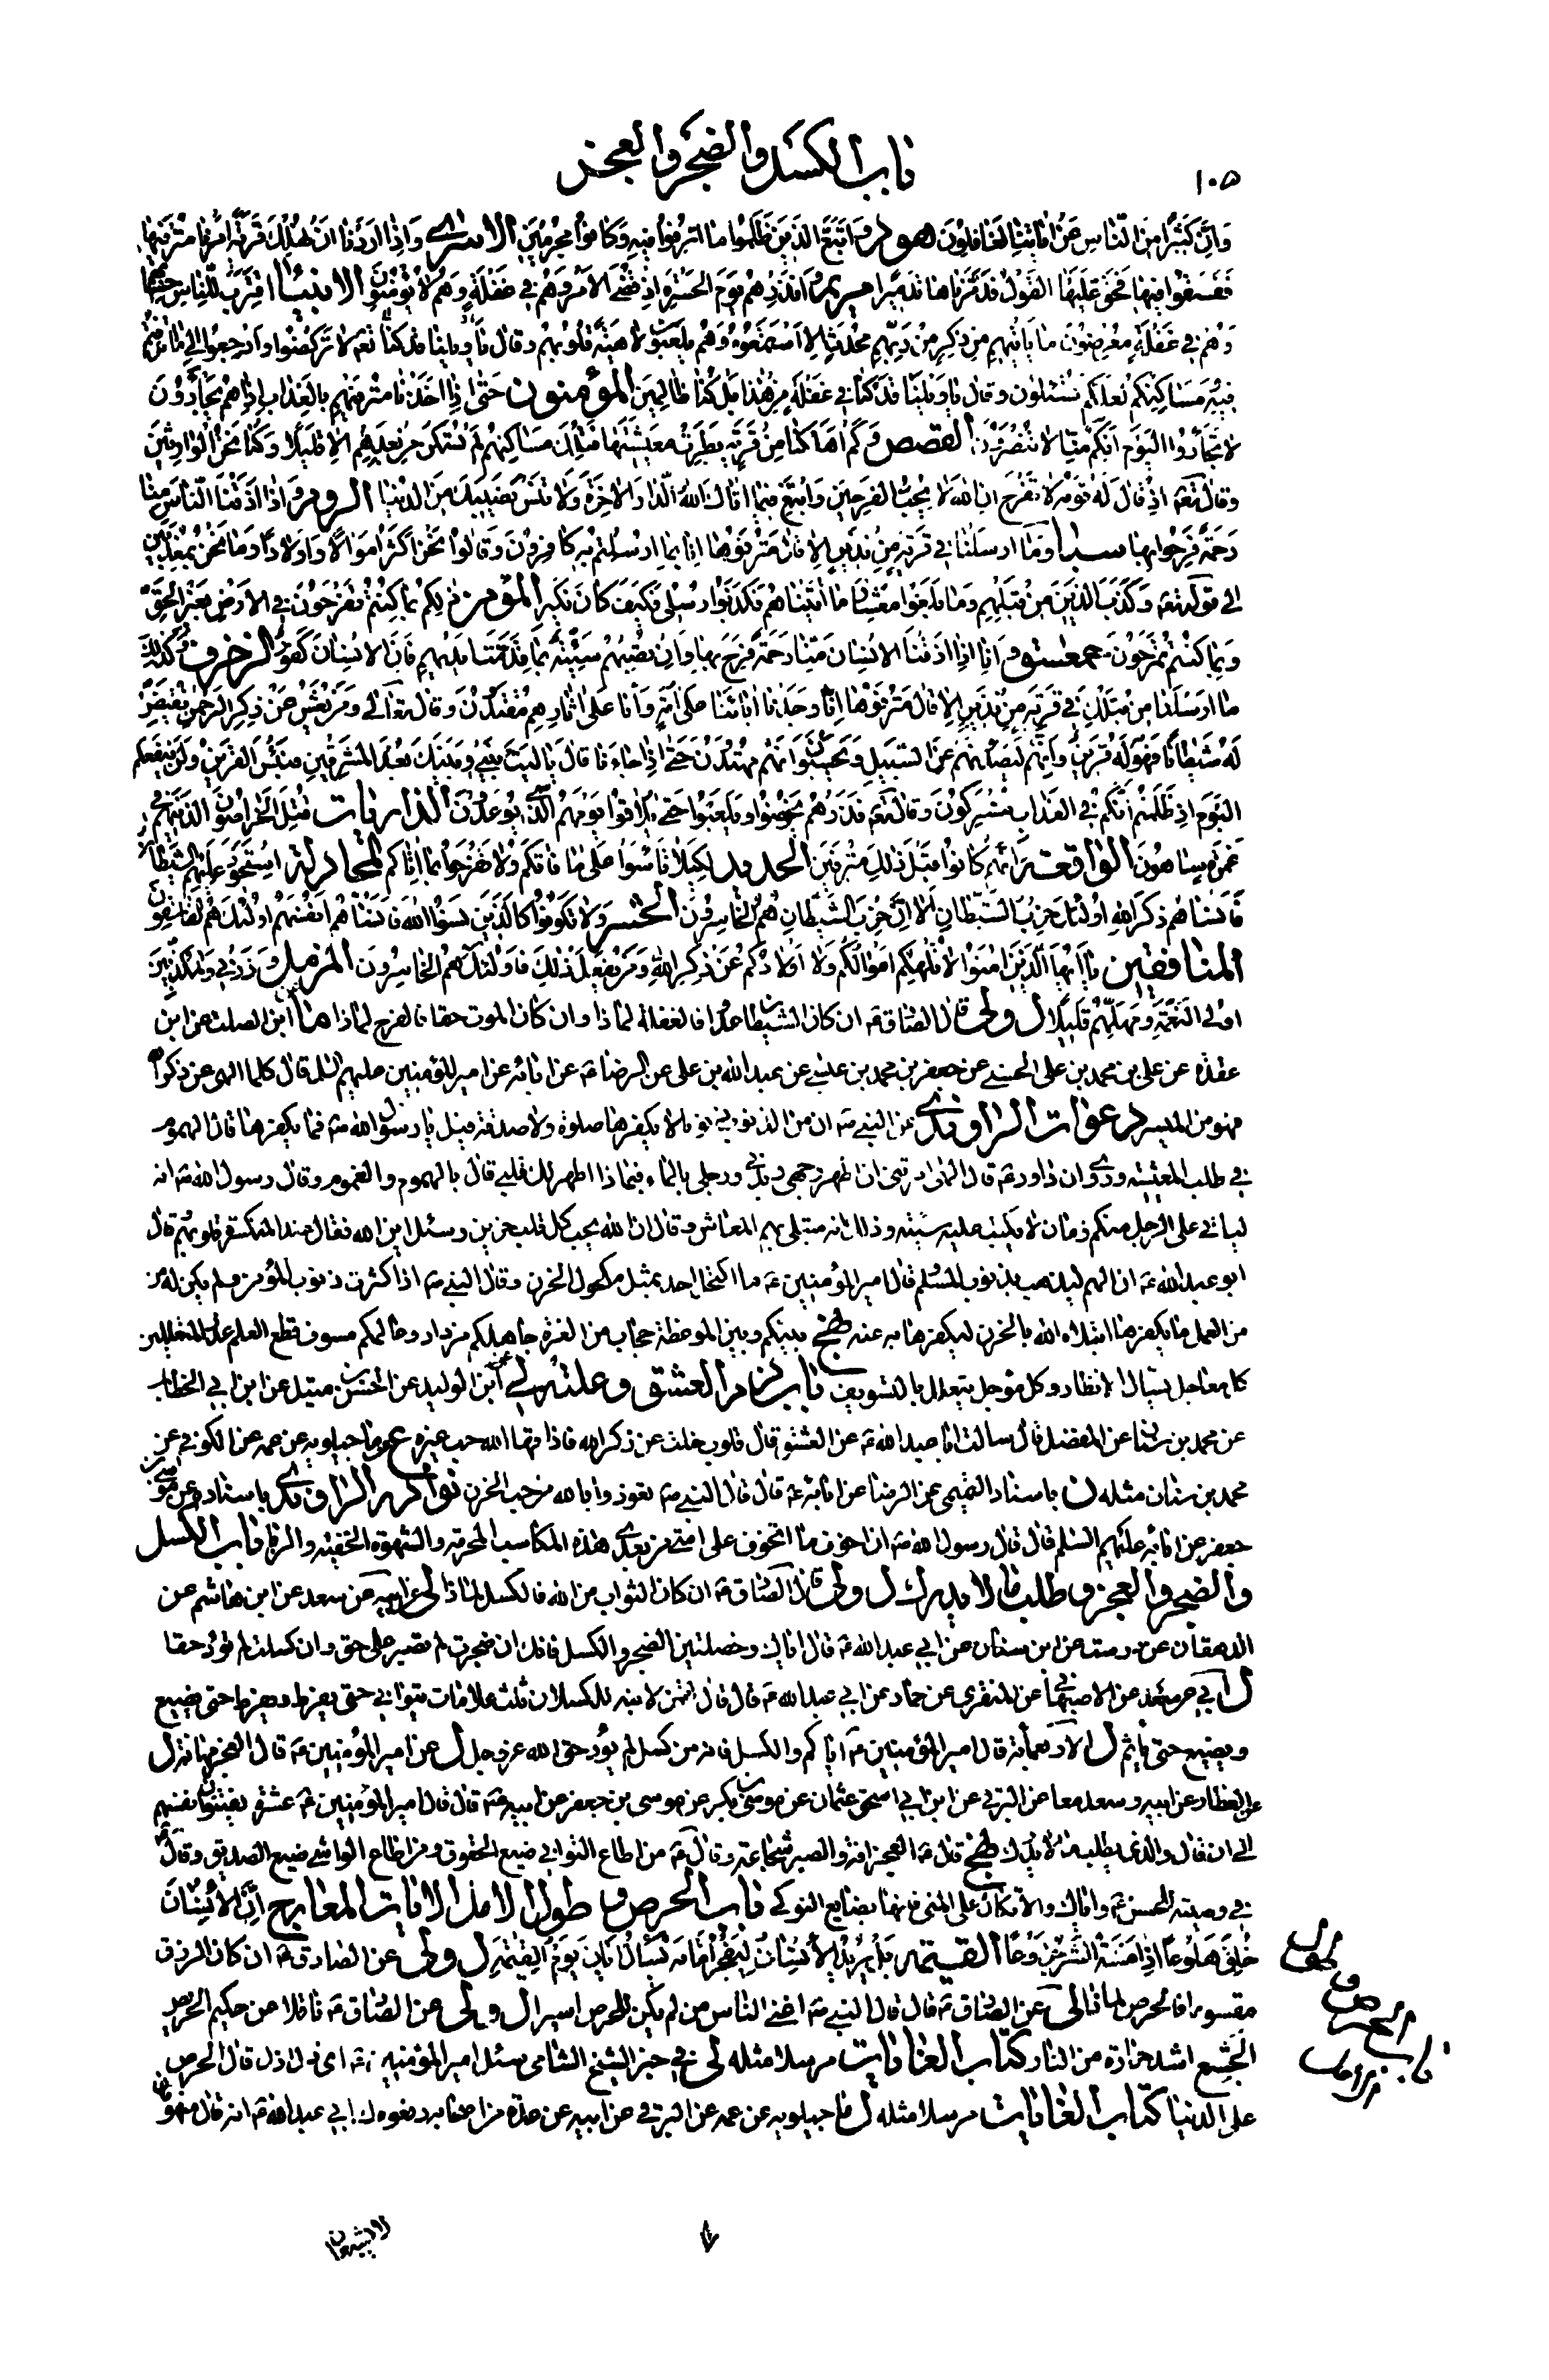 ١٠٥
باب الكسل والضجر والعجز
وَاِنَّ كَثيرًا مِنَ النّاسِ عَنْ اٰياتِنا لَغافِلُونَ هود وَاتَّبَعَ الَّذينَ ظَلَمُوا ما اُتْرِفُوا فيهِ وَكانُوا مُجْرِمينَ الاسرى وَاِذا اَرَدْنا اَنْ نُهْلِكَ قَرْيَةً اَمَرْنا مُتْرَفيها
فَفَسَقُوا فيها فَحَقَّ عَلَيْهَا الْقَوْلُ فَدَمَّرْناها تَدْميرًا مريم وَاَنْذِرْهُمْ يَوْمَ الْحَسْرَةِ اِذْ قُضِيَ الْاَمْرُ وَهُمْ في غَفْلَةٍ وَهُمْ لا يُؤْمِنُونَ الانبيا اقْتَرَبَ لِلنّاسِ حِسابُهُمْ
وَهُمْ في غَفْلَةٍ مُعْرِضُونَ ما يَأْتيهِمْ مِنْ ذِكْرٍ مِنْ رَبِّهِمْ مُحْدَثٍ اِلَّا اسْتَمَعُوهُ وَهُمْ يَلْعَبُونَ لاهِيَةً قُلُوبُهُمْ وقال يا ويلنا قد كنا تعه لا تَرْكُضُوا وَارْجِعُوا اِلى ما اُتْرِفْتُمْ
فيهِ وَمَساكِنِكُمْ لَعَلَّكُمْ تُسْئَلُونَ وقال يا وَيْلَنا قَدْ كُنّا في غَفْلَةٍ مِنْ هٰذا بَلْ كُنّا ظالِمينَ المؤمنون حَتّى اِذا اَخَذْنا مُتْرَفيهِمْ بِالْعَذابِ اِذا هُمْ يَجْأَرُونَ
لا تَجْأَرُوا الْيَوْمَ اِنَّكُمْ مِنّا لا تُنْصَرُونَ القصص وَكَمْ اَهْلَكْنا مِنْ قَرْيَةٍ بَطِرَتْ مَعيشَتَها فَتِلْكَ مَساكِنُهُمْ لَمْ تُسْكَنْ مِنْ بَعْدِهِمْ اِلّا قَليلًا وَكُنّا نَحْنُ الْوارِثينَ
وقال تعه اِذْ قالَ لَهُ قَوْمُهُ لا تَفْرَحْ اِنَّ اللهَ لا يُحِبُّ الْفَرِحينَ وَابْتَغِ فيما اٰتاكَ اللهُ الدّارَ الْاٰخِرَةَ وَلا تَنْسَ نَصيبَكَ مِنَ الدُّنْيا الروم وَاِذا اَذَقْنَا النّاسَ مِنّا
رَحْمَةً فَرِحُوا بِها سبا وَما اَرْسَلْنا في قَرْيَةٍ مِنْ نَذيرٍ اِلّا قالَ مُتْرَفُوها اِنّا بِما اُرْسِلْتُمْ بِهِ كافِرُونَ وَقالُوا نَحْنُ اَكْثَرُ اَمْوالًا وَاَوْلادًا وَما نَحْنُ بِمُعَذَّبينَ
الى قوله تعه وَكَذَّبَ الَّذينَ مِنْ قَبْلِهِمْ وَما بَلَغُوا مِعْشارَ ما اٰتَيْناهُمْ فَكَذَّبُوا رُسُلي فَكَيْفَ كانَ نَكيرِ المؤمن ذٰلِكُمْ بِما كُنْتُمْ تَفْرَحُونَ فِي الْاَرْضِ بِغَيْرِ الْحَقِّ
وَبِما كُنْتُمْ تَمْرَحُونَ حمعسق وَاِنّا اِذا اَذَقْنَا الْاِنْسانَ مِنّا رَحْمَةً فَرِحَ بِها وَاِنْ تُصِبْهُمْ سَيِّئَةٌ بِما قَدَّمَتْ اَيْديهِمْ فَاِنَّ الْاِنْسانَ كَفُورٌ الزخرف وَكَذٰلِكَ
ما اَرْسَلْنا مِنْ قَبْلِكَ في قَرْيَةٍ مِنْ نَذيرٍ اِلّا قالَ مُتْرَفُوها اِنّا وَجَدْنا اٰباءَنا عَلى اُمَّةٍ وَاِنّا عَلى اٰثارِهِمْ مُقْتَدُونَ وقال تعالى وَمَنْ يَعْشُ عَنْ ذِكْرِ الرَّحْمٰنِ نُقَيِّضْ
لَهُ شَيْطانًا فَهُوَ لَهُ قَرينٌ وَاِنَّهُمْ لَيَصُدُّونَهُمْ عَنِ السَّبيلِ وَيَحْسَبُونَ اَنَّهُمْ مُهْتَدُونَ حَتّى اِذا جاءَنا قالَ يا لَيْتَ بَيْني وَبَيْنَكَ بُعْدَ الْمَشْرِقَيْنِ فَبِئْسَ الْقَرينُ وَلَنْ يَنْفَعَكُمُ
الْيَوْمَ اِذْ ظَلَمْتُمْ اَنَّكُمْ فِي الْعَذابِ مُشْتَرِكُونَ وقال تعه فَذَرْهُمْ يَخُوضُوا وَيَلْعَبُوا حَتّى يُلاقُوا يَوْمَهُمُ الَّذي يُوعَدُونَ الذاريات قُتِلَ الْخَرّاصُونَ الَّذينَ هُمْ في
غَمْرَةٍ ساهُونَ الواقعة اِنَّهُمْ كانُوا قَبْلَ ذٰلِكَ مُتْرَفينَ الحديد لِكَيْلا تَأْسَوْا عَلى ما فاتَكُمْ وَلا تَفْرَحُوا بِما اٰتاكُمْ المجادلة اسْتَحْوَذَ عَلَيْهِمُ الشَّيْطانُ
فَاَنْساهُمْ ذِكْرَ اللهِ اُولٰئِكَ حِزْبُ الشَّيْطانِ اَلا اِنَّ حِزْبَ الشَّيْطانِ هُمُ الْخاسِرُونَ الحشر وَلا تَكُونُوا كَالَّذينَ نَسُوا اللهَ فَاَنْساهُمْ اَنْفُسَهُمْ اُولٰئِكَ هُمُ الْفاسِقُونَ
المنافقين يا اَيُّهَا الَّذينَ اٰمَنُوا لا تُلْهِكُمْ اَمْوالُكُمْ وَلا اَوْلادُكُمْ عَنْ ذِكْرِ اللهِ وَمَنْ يَفْعَلْ ذٰلِكَ فَاُولٰئِكَ هُمُ الْخاسِرُونَ المزمل وَذَرْني وَالْمُكَذِّبينَ
اُولِي النَّعْمَةِ وَمَهِّلْهُمْ قَليلًا ل ولى قال الصادق ع ان كان الشيطان عدوا فالغفلة لماذا وان كان الموت حقا فالفرح لماذا ما ابن الصلت عن ابن
عقدة عن علي بن محمد بن علي الحسيني عن جعفر بن محمد بن عيسى عن عبد الله بن علي عن الرضا ع عن ابائه عن امير المؤمنين عليهم السلم قال كلما الهى عن ذكر الله
فهو من الميسر دعوات الراوندي عن النبي ص ان من الذنوب ذنوبا لا يكفرها صلوة ولا صدقة قيل يا رسول الله ص فما يكفرها قال الهموم
في طلب المعيشة وروي ان داود ع قال الهى امرتنى ان اطهر وجهى وبدني ورجلي بالماء فبماذا اطهر لك قلبي قال بالهموم والغموم وقال رسول الله ص انه
لياتي على الرجل منكم زمان لا يكتب عليه سيئة وذلك انه مبتلى بهم المعاش وقال ان الله يحب كل قلب حزين وسئل اين الله فقال عند المنكسرة قلوبهم قال
ابو عبد الله ع ان الهم ليذهب بذنوب المسلم قال امير المؤمنين ع ما اكتحل احد بمثل مكحول الحزن وقال النبي ص اذا كثرت ذنوب المؤمن ولم يكن له
من العمل ما يكفرها ابتلاه الله بالحزن ليكفرها به عنه نهج بينكم وبين الموعظة حجاب من الغرة جاهلكم مزداد وعالمكم مسوف قطع العلم عذر المتعللين
كل معاجل يسال الانظار وكل مؤجل يتعلل بالتسويف باب ذم العشق وعلته لي ابن الوليد عن الحسن بن متيل عن ابن ابي الخطاب
عن محمد بن سنان عن المفضل قال سالت ابا عبد الله ع عن العشق قال قلوب خلت عن ذكر الله فاذاقها الله حب غيره ع ماجيلويه عن عمه عن الكوفي عن
محمد بن سنان مثله ن باسناد التميمي عن الرضا عن ابائه ع قال قال النبي ص تعوذوا بالله من حب الحزن نوادر الراوندي باسناده عن موسى بن
جعفر عن ابائه عليهم السلم قال قال رسول الله ص ان اخوف ما اتخوف على امتي من بعدي هذه المكاسب المحرمة والشهوة الخفية والربا باب الكسل
والضجر والعجز وطلب ما لا يدرك ل ولى قال الصادق ع ان كان الثواب من الله فالكسل لماذا لى ابي عن سعد عن ابن هاشم عن
الدهقان عن درست عن ابن سنان عن ابي عبد الله ع قال اياك وخصلتين الضجر والكسل فانك ان ضجرت لم تصبر على حق وان كسلت لم تؤد حقا
ل ابي عن سعد عن الاصبهاني عن المنقري عن حماد عن ابي عبد الله ع قال قال لقمن لابنه للكسلان ثلث علامات يتوانى حتى يفرط ويفرط حتى يضيع
ويضيع حتى ياثم ل الاربعمائة قال امير المؤمنين ع اياكم والكسل فانه من كسل لم يؤد حق الله عز وجل ل عن امير المؤمنين ع قال العجز مهانة ل
العطار عن ابيه وسعد معا عن البرقي عن ابن ابي عثمان عن موسى بن بكر عن موسى بن جعفر عن ابيه ع قال قال امير المؤمنين ع عشرة يفتنون انفسهم
الى ان قال والذي يطلب ما لا يدرك نهج قال ع العجز افة والصبر شجاعة وقال ع من اطاع التواني ضيع الحقوق ومن اطاع الواشي ضيع الصديق وقال ع
في وصيته للحسن ع واياك والاتكال على المنى فانها بضايع النوكى باب الحرص وطول الامل الايات المعارج اِنَّ الْاِنْسانَ
خُلِقَ هَلُوعًا اِذا مَسَّهُ الشَّرُّ جَزُوعًا القيمة بَلْ يُريدُ الْاِنْسانُ لِيَفْجُرَ اَمامَهُ يَسْأَلُ اَيّانَ يَوْمُ الْقِيٰمَةِ ل ولى عن الصادق ع ان كان الرزق
مقسوما فالحرص لماذا لى عن الصادق ع قال قال النبي ص اغنى الناس من لم يكن للحرص اسيرا ل ولى عن الصادق ع ناقلا عن حكيم الحريص
الجشع اشد حرارة من النار كتاب الغايات مرسلا مثله لى في خبر الشيخ الشامي سئل امير المؤمنين ع اى ذل اذل قال الحرص
على الدنيا كتاب الغايات مرسلا مثله ل ماجيلويه عن عمه عن البرقي عن ابيه عن عدة من اصحابه رفعوه الى ابي عبد الله ع انه قال منهومان
باب ذم
الحرص و
طول
لا يشبعان